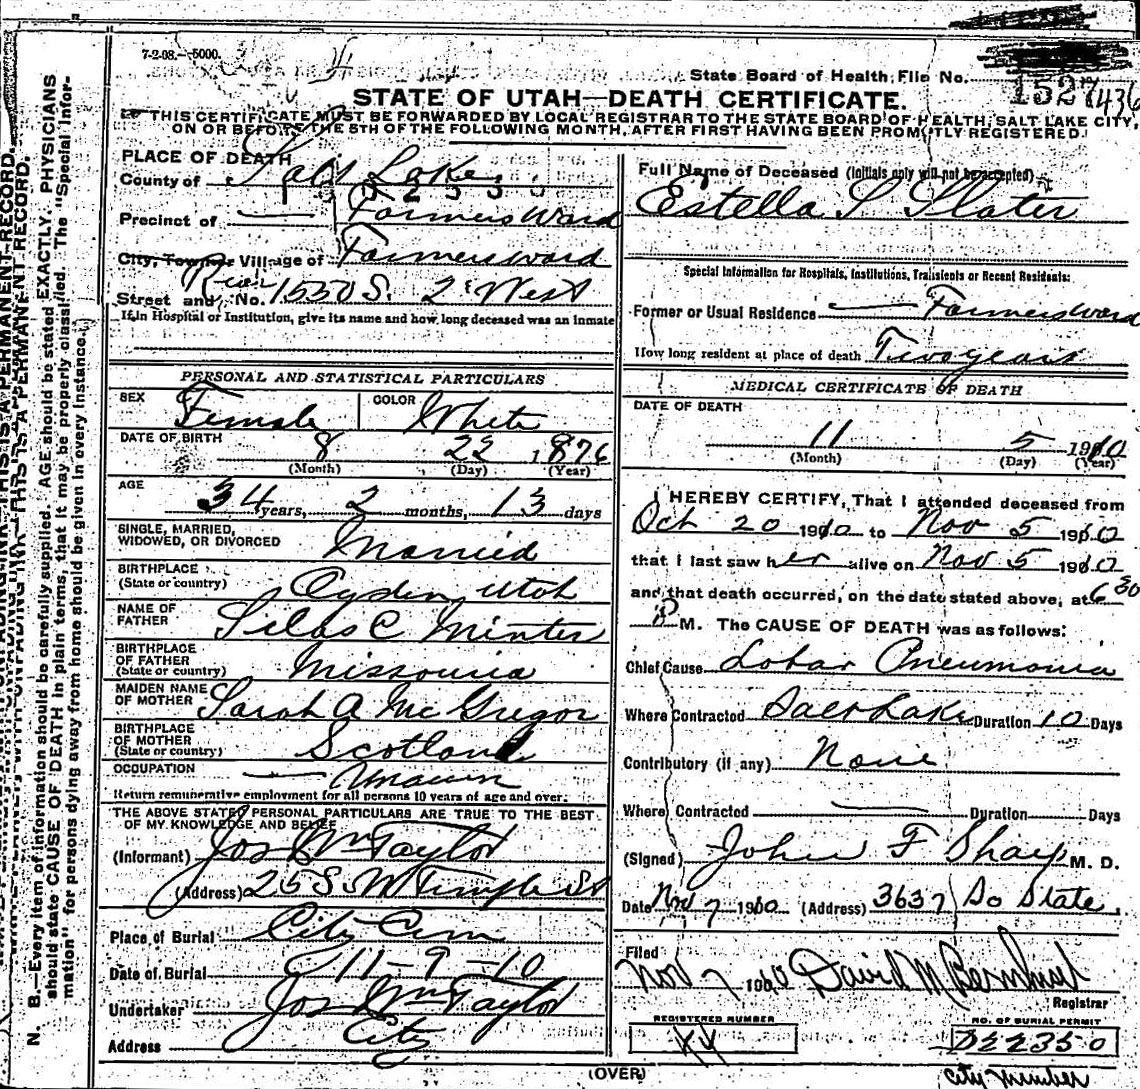 7-2-08.—5000.
State Board of Health, File No.
1527 436
STATE OF UTAH—DEATH CERTIFICATE.
THIS CERTIFICATE MUST BE FORWARDED BY LOCAL REGISTRAR TO THE STATE BOARD OF HEALTH, SALT LAKE CITY,
ON OR BEFORE THE 5TH OF THE FOLLOWING MONTH, AFTER FIRST HAVING BEEN PROMPTLY REGISTERED.
PLACE OF DEATH
County of Salt Lake
Precinct of Farmers Ward
City, Town or Village of Farmersward
Street and No. 1530 S. 2 West
River
If in Hospital or Institution, give its name and how long deceased was an inmate
PERSONAL AND STATISTICAL PARTICULARS
SEX Female COLOR White
DATE OF BIRTH 8 22 1876
(Month) (Day) (Year)
AGE 34 years, 2 months, 13 days
SINGLE, MARRIED,
WIDOWED, OR DIVORCED Married
BIRTHPLACE
(State or country) Ogden, Utah
NAME OF
FATHER Silas C Minter
BIRTHPLACE
OF FATHER
(State or country) Missouria
MAIDEN NAME
OF MOTHER Sarah A McGregor
BIRTHPLACE
OF MOTHER
(State or country) Scotland
OCCUPATION
Return remunerative employment for all persons 10 years of age and over.
THE ABOVE STATED PERSONAL PARTICULARS ARE TRUE TO THE BEST
OF MY KNOWLEDGE AND BELIEF
(Informant) Jos Wm Taylor
(Address) 25 S. W Temple St
Place of Burial City Cem
Date of Burial 11-9-10
Undertaker Jos Wm Taylor
Address City
Full Name of Deceased (Initials only will not be accepted)
Estella S Slater
Special Information for Hospitals, Institutions, Transients or Recent Residents:
Former or Usual Residence Farmersward
How long resident at place of death Two years
MEDICAL CERTIFICATE OF DEATH
DATE OF DEATH
11 5 1910
(Month) (Day) (Year)
I HEREBY CERTIFY, That I attended deceased from
Oct 20 1910 to Nov 5 1910
that I last saw her alive on Nov 5 1910
and that death occurred, on the date stated above, at 6 30
P M. The CAUSE OF DEATH was as follows:
Chief Cause Lobar Pneumonia
Where Contracted Salt Lake Duration 10 Days
Contributory (if any) None
Where Contracted Duration Days
(Signed) John F Sharp M. D.
Date Nov 7 1910 (Address) 3637 So State.
Filed
Nov 7 1910 David M
Registrar
REGISTERED NUMBER
NO. OF BURIAL PERMIT
D22350
City Number
(OVER)
N. B.—Every item of information should be carefully supplied. AGE should be stated EXACTLY. PHYSICIANS
should state CAUSE OF DEATH in plain terms, that it may be properly classified. The "Special Infor-
mation" for persons dying away from home should be given in every instance.
THIS IS A PERMANENT RECORD.